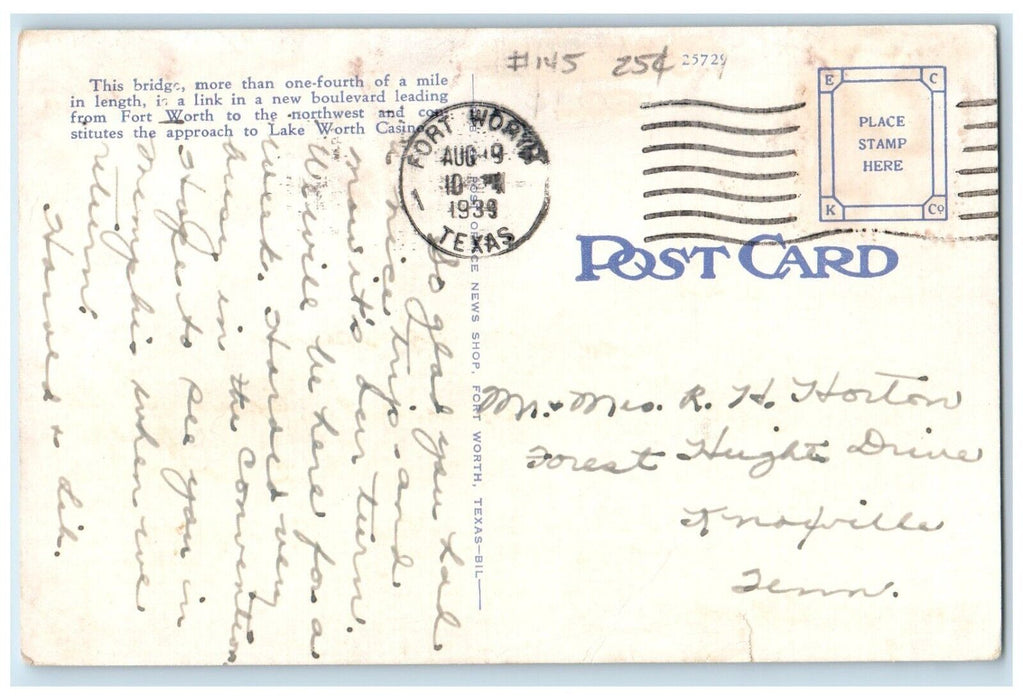 #145 25¢ 25729
This bridge, more than one-fourth of a mile
in length, is a link in a new boulevard leading
from Fort Worth to the northwest and con-
stitutes the approach to Lake Worth Casino.
FORT WORTH
AUG 9
10
1
TEXAS
E C
PLACE
STAMP
HERE
K Co
POST CARD
POST OFFICE NEWS SHOP, FORT WORTH, TEXAS—BIL
So glad you had
a nice trip and
now it's our turn.
We will be here for a
week. Harved very
busy in the convention
Hope to see you in
Memphis when we
return.
Harved + Lib.
Mr. + Mrs. R. H. Horton
Forest Heights Drive
Knoxville
Tenn.